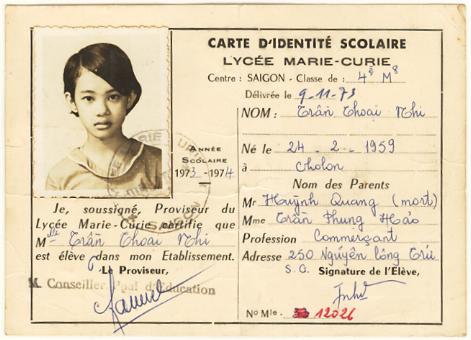 CARTE D'IDENTITÉ SCOLAIRE
LYCÉE MARIE-CURIE
Centre : SAIGON - Classe de : 4è M8
Délivrée le 9-11-73
NOM : Trân Thoại Nhi
Né le 24 - 2 - 1959
à Cholon
Nom des Parents
Mr Huỳnh Quang (mort)
Mme Trân Phụng Hảo
Profession Commerçant
Adresse 250 Nguyễn Công Trứ
S. G. Signature de l'Élève,
No Mle. 12026
ANNÉE
SCOLAIRE
1973-1974
Je, soussigné, Proviseur du
Lycée Marie-Curie certifie que
Mlle Trân Thoại Nhi
est élève dans mon Etablissement.
Le Proviseur,
M. Conseiller Ppal d'Education